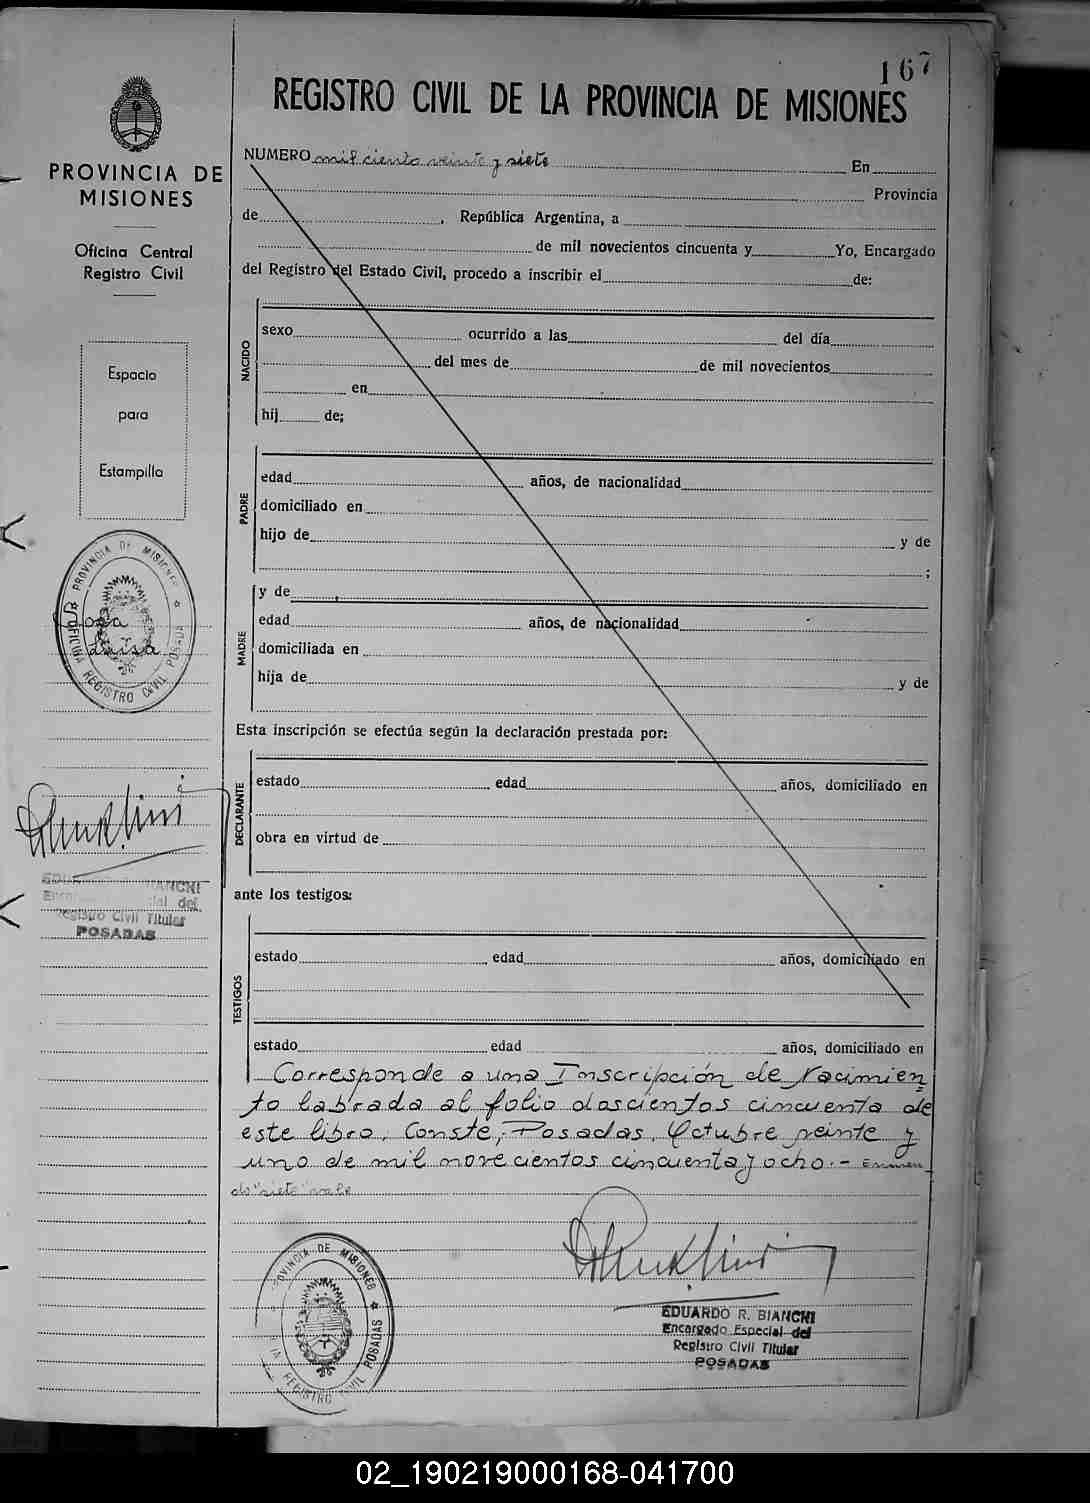 167
REGISTRO CIVIL DE LA PROVINCIA DE MISIONES
PROVINCIA DE
MISIONES
Oficina Central
Registro Civil
Espacio
para
Estampilla
PROVINCIA DE MISIONES
OFICINA REGISTRO CIVIL POSADAS
Luisa
EDU BIANCHI
ial del
Registro Civil Titular
POSADAS
NUMERO mil ciento veinte y siete En
Provincia
de , República Argentina, a
de mil novecientos cincuenta y Yo, Encargado
del Registro del Estado Civil, procedo a inscribir el de:
NACIDO
sexo ocurrido a las del día
del mes de de mil novecientos
en
hij de;
PADRE
edad años, de nacionalidad
domiciliado en
hijo de y de
;
MADRE
y de
edad años, de nacionalidad
domiciliada en
hija de y de
Esta inscripción se efectúa según la declaración prestada por:
DECLARANTE
estado edad años, domiciliado en
obra en virtud de
ante los testigos:
TESTIGOS
estado edad años, domiciliado en
estado edad años, domiciliado en
Corresponde a una Inscripción de Nacimien
to labrada al folio doscientos cincuenta de
este libro. Conste, Posadas, Octubre veinte y
uno de mil novecientos cincuenta y ocho.- Enmen
do "siete" vale
PROVINCIA DE MISIONES
REGISTRO CIVIL POSADAS
EDUARDO R. BIANCHI
Encargado Especial del
Registro Civil Titular
POSADAS
02_190219000168-041700